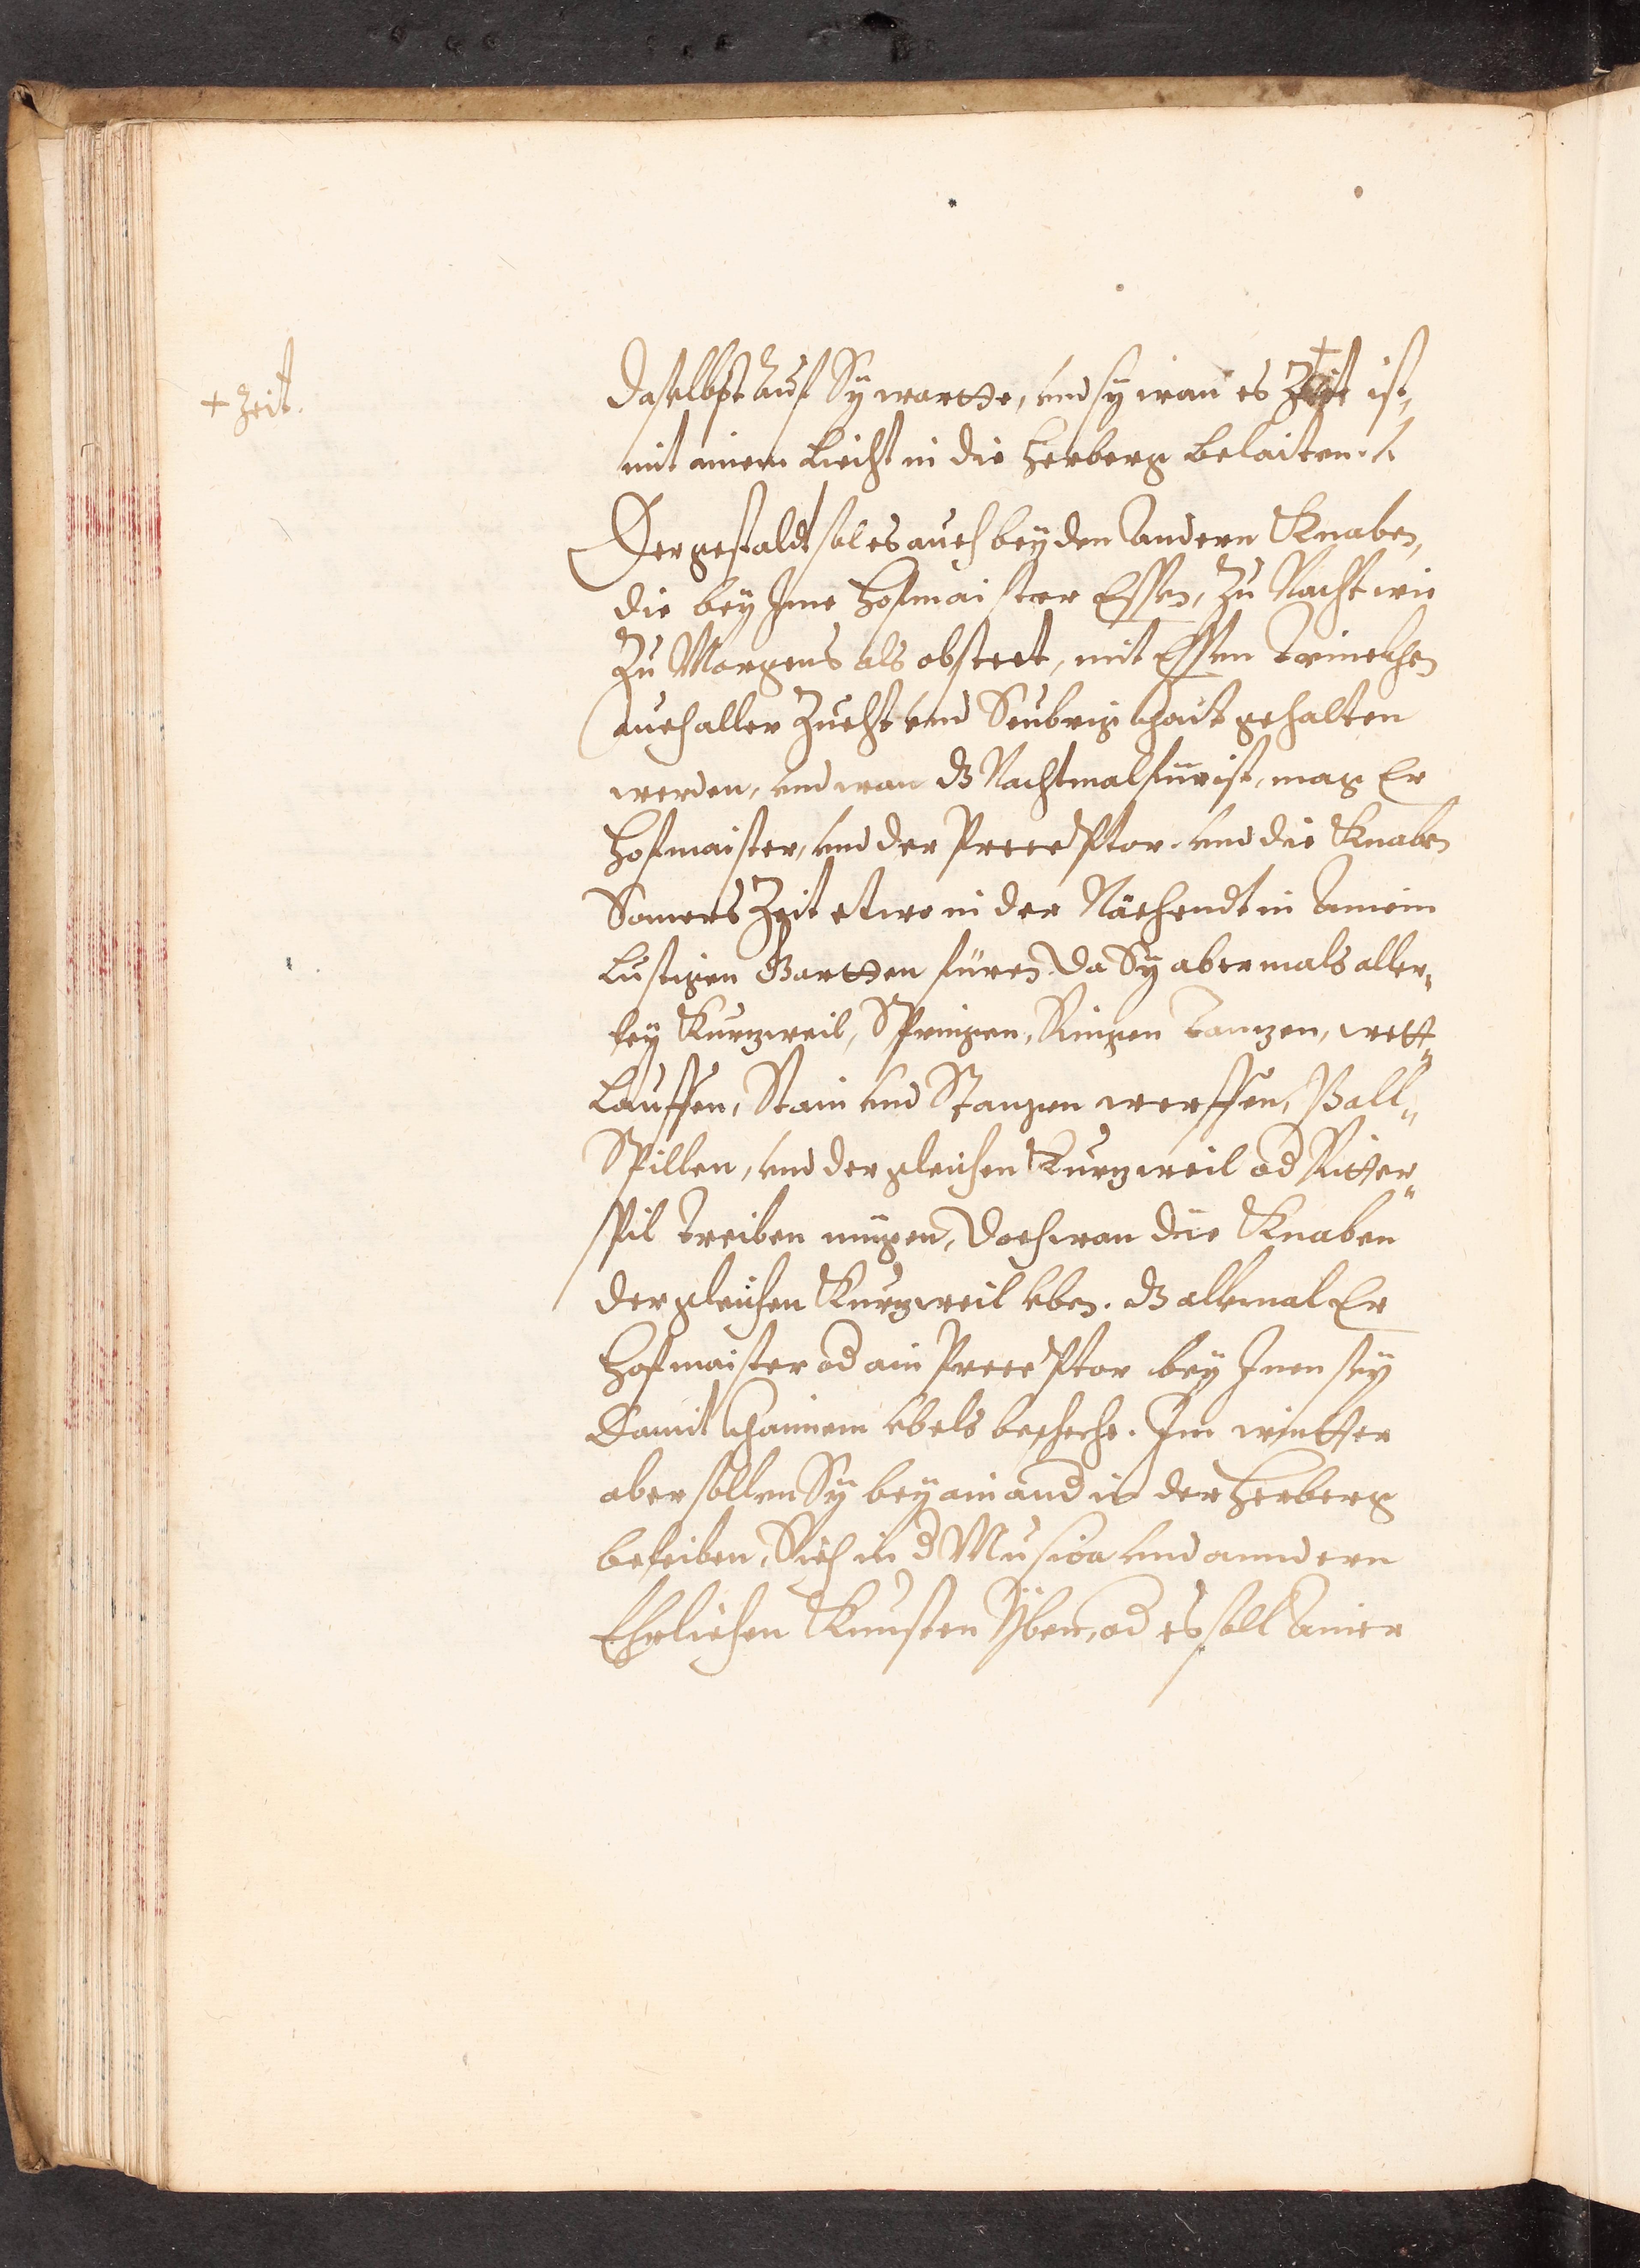 + Zeit.
daselbst auf Sy wartte, und sy wan es Zeit ist,
mit ainem Liecht in die Herberg belaiten.
Dergestaldt sol es auch bey den Andern Knaben,
die bey Ime Hofmaister Essen, Zu Nacht wie
Zu Morgens als obsteet, mit Essen Trinckhen
auch aller Zucht und Seubrigkhait gehalten
werden, und wan dz Nachtmal fürist, mag Er
Hofmaister, und der Preceptor und die Knaben
Somers Zeit etwo in der Nächendt in Ainem
Lustigen Gartten füren. Da Sy abermals aller„
ley Kurzweil, Springen, Ringen Tanzen, wett„
Lauffen, Stain und Stangen werffen, Ball„
Spillen, und dergleichen Kurzweil od Ritter„
spil Treiben mügen, Doch wan die Knaben
dergleichen Kurzweil eben. dz allemal Er
Hofmaister od ain Preceptor bey Inen sey
Damit khainem Ubels bescheche. Im wintter
aber sollen Sy bey ain and in der Herberg
beleiben, Sich in d Musica und anndern
Ehrlichen Kunsten Yben, od es soll Ainer